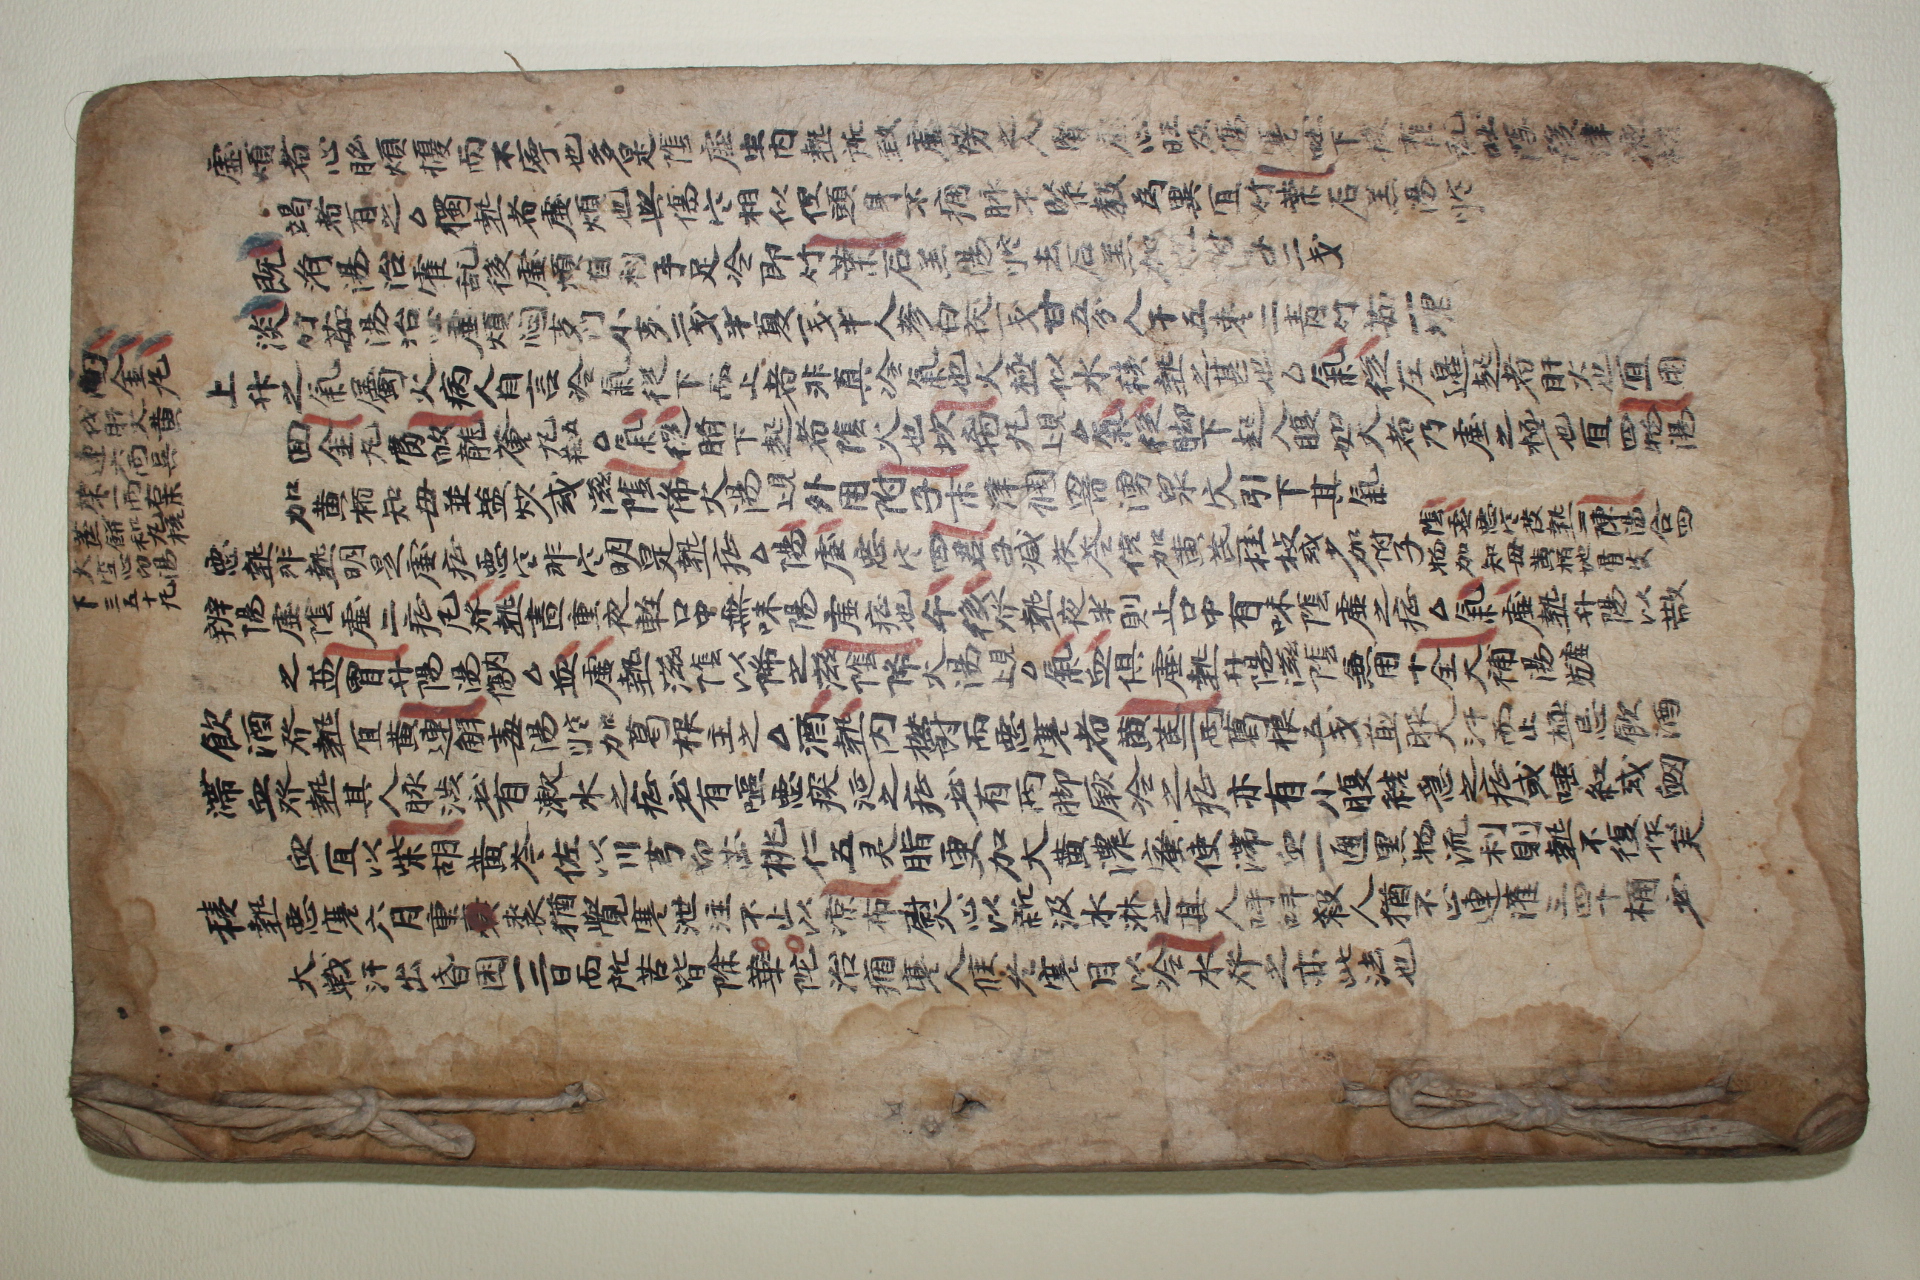 回金丸
伐肝火黄
連六両吳
茱一両右末
蒸餠和丸梧
大空心白湯
下三五十丸
虛煩者心胸煩擾而不寧也多是陰虛生内熱所致虛勞之人腎虛心旺及傷寒吐下後霍乱吐瀉後津液枯
竭者有之△獨熱者虛煩也與傷寒相似但頭身不痛脉不緊數為異宜竹葉石羔湯
既濟湯治霍乱後虛煩自利手足冷卽竹葉石羔湯去石羔加炮附子二戔
淡竹茹湯治心虛煩悶麥門小麥二戔半夏一戔半人參白茯一戔甘五分入干五枣二青竹茹一塊
上升之氣屬火病人自言冷氣從下而上者非真冷氣也火極似水積熱之甚也△氣從左邊起者肝火也宜用
回金丸當歸龍薈丸五莊△氣從臍下起者陰火也坎离丸上見△氣從脚下起入腹如火者乃虛之極也宜四物湯
加黄栢知母並塩炒或滋陰降火湯上見外用附子末津調罯湧泉穴引下其氣
惡熱非熱明是虛症惡寒非寒明是熱症△陽虛惡寒四君子减茯苓倍加黄茋桂枝或少加附子 陰虛惡寒发熱二陳湯合四物加知母黄栢地骨皮
辨陽虛陰虛二症凡發熱晝重夜輕口中無味陽虛症也午後發熱夜半則止口中有味陰虛之症△氣虛熱升陽以散
之益胃升陽湯内傷△血虛熱滋陰以降之滋陰降火湯上見△氣血俱虛熱升陽滋陰兼用十全大補湯虛勞
飮酒發熱宜黄連解毒湯加葛根主之△酒熱内欝而惡寒者黄茋一両葛根五戔煎服大汗而止極忌飮酒
滯血發熱其人脉澁必有漱水之症必有嘔惡痰涎之症必有両脚厥冷之症亦有小腹結急之症或唾紅或衂
血宜以柴胡黄芩佐以川芎白芷桃仁五灵脂更加大黄濃蜜使滯血一通黒物流利則熱不復作矣
積熱惡寒六月重裘猶覺寒泄注不止以凉布熨心以新汲水淋之其人呼呌殺人猶不止連灌三四十桶必
大戰汗出昏困一二日而所苦皆除華陀治痼寒人隆冬寒月以冷水發之亦此法也